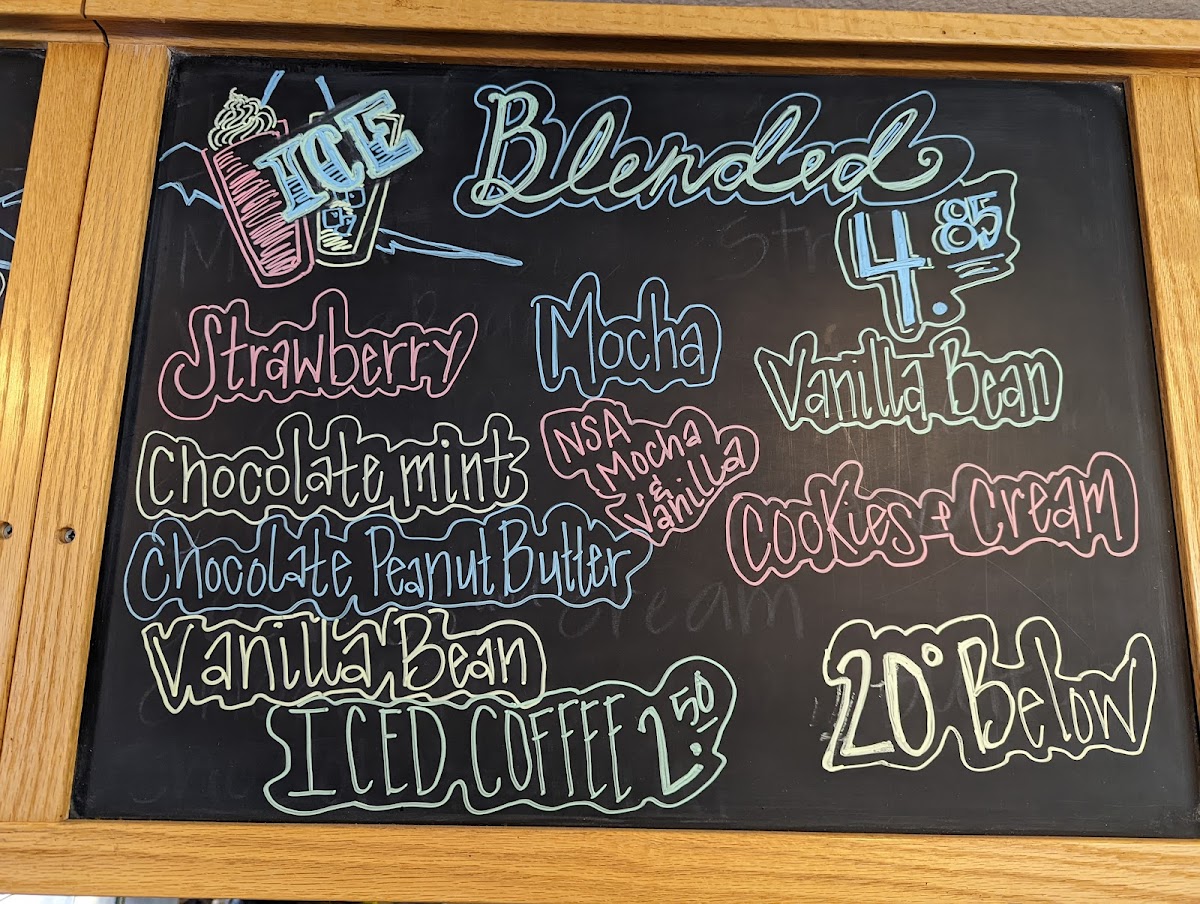 ICE Blended
4.85
Strawberry
Mocha
Vanilla Bean
Chocolate mint
NSA
Mocha
&
Vanilla
Cookies & Cream
Chocolate Peanut Butter
Vanilla Bean
20° Below
ICED COFFEE 2.50